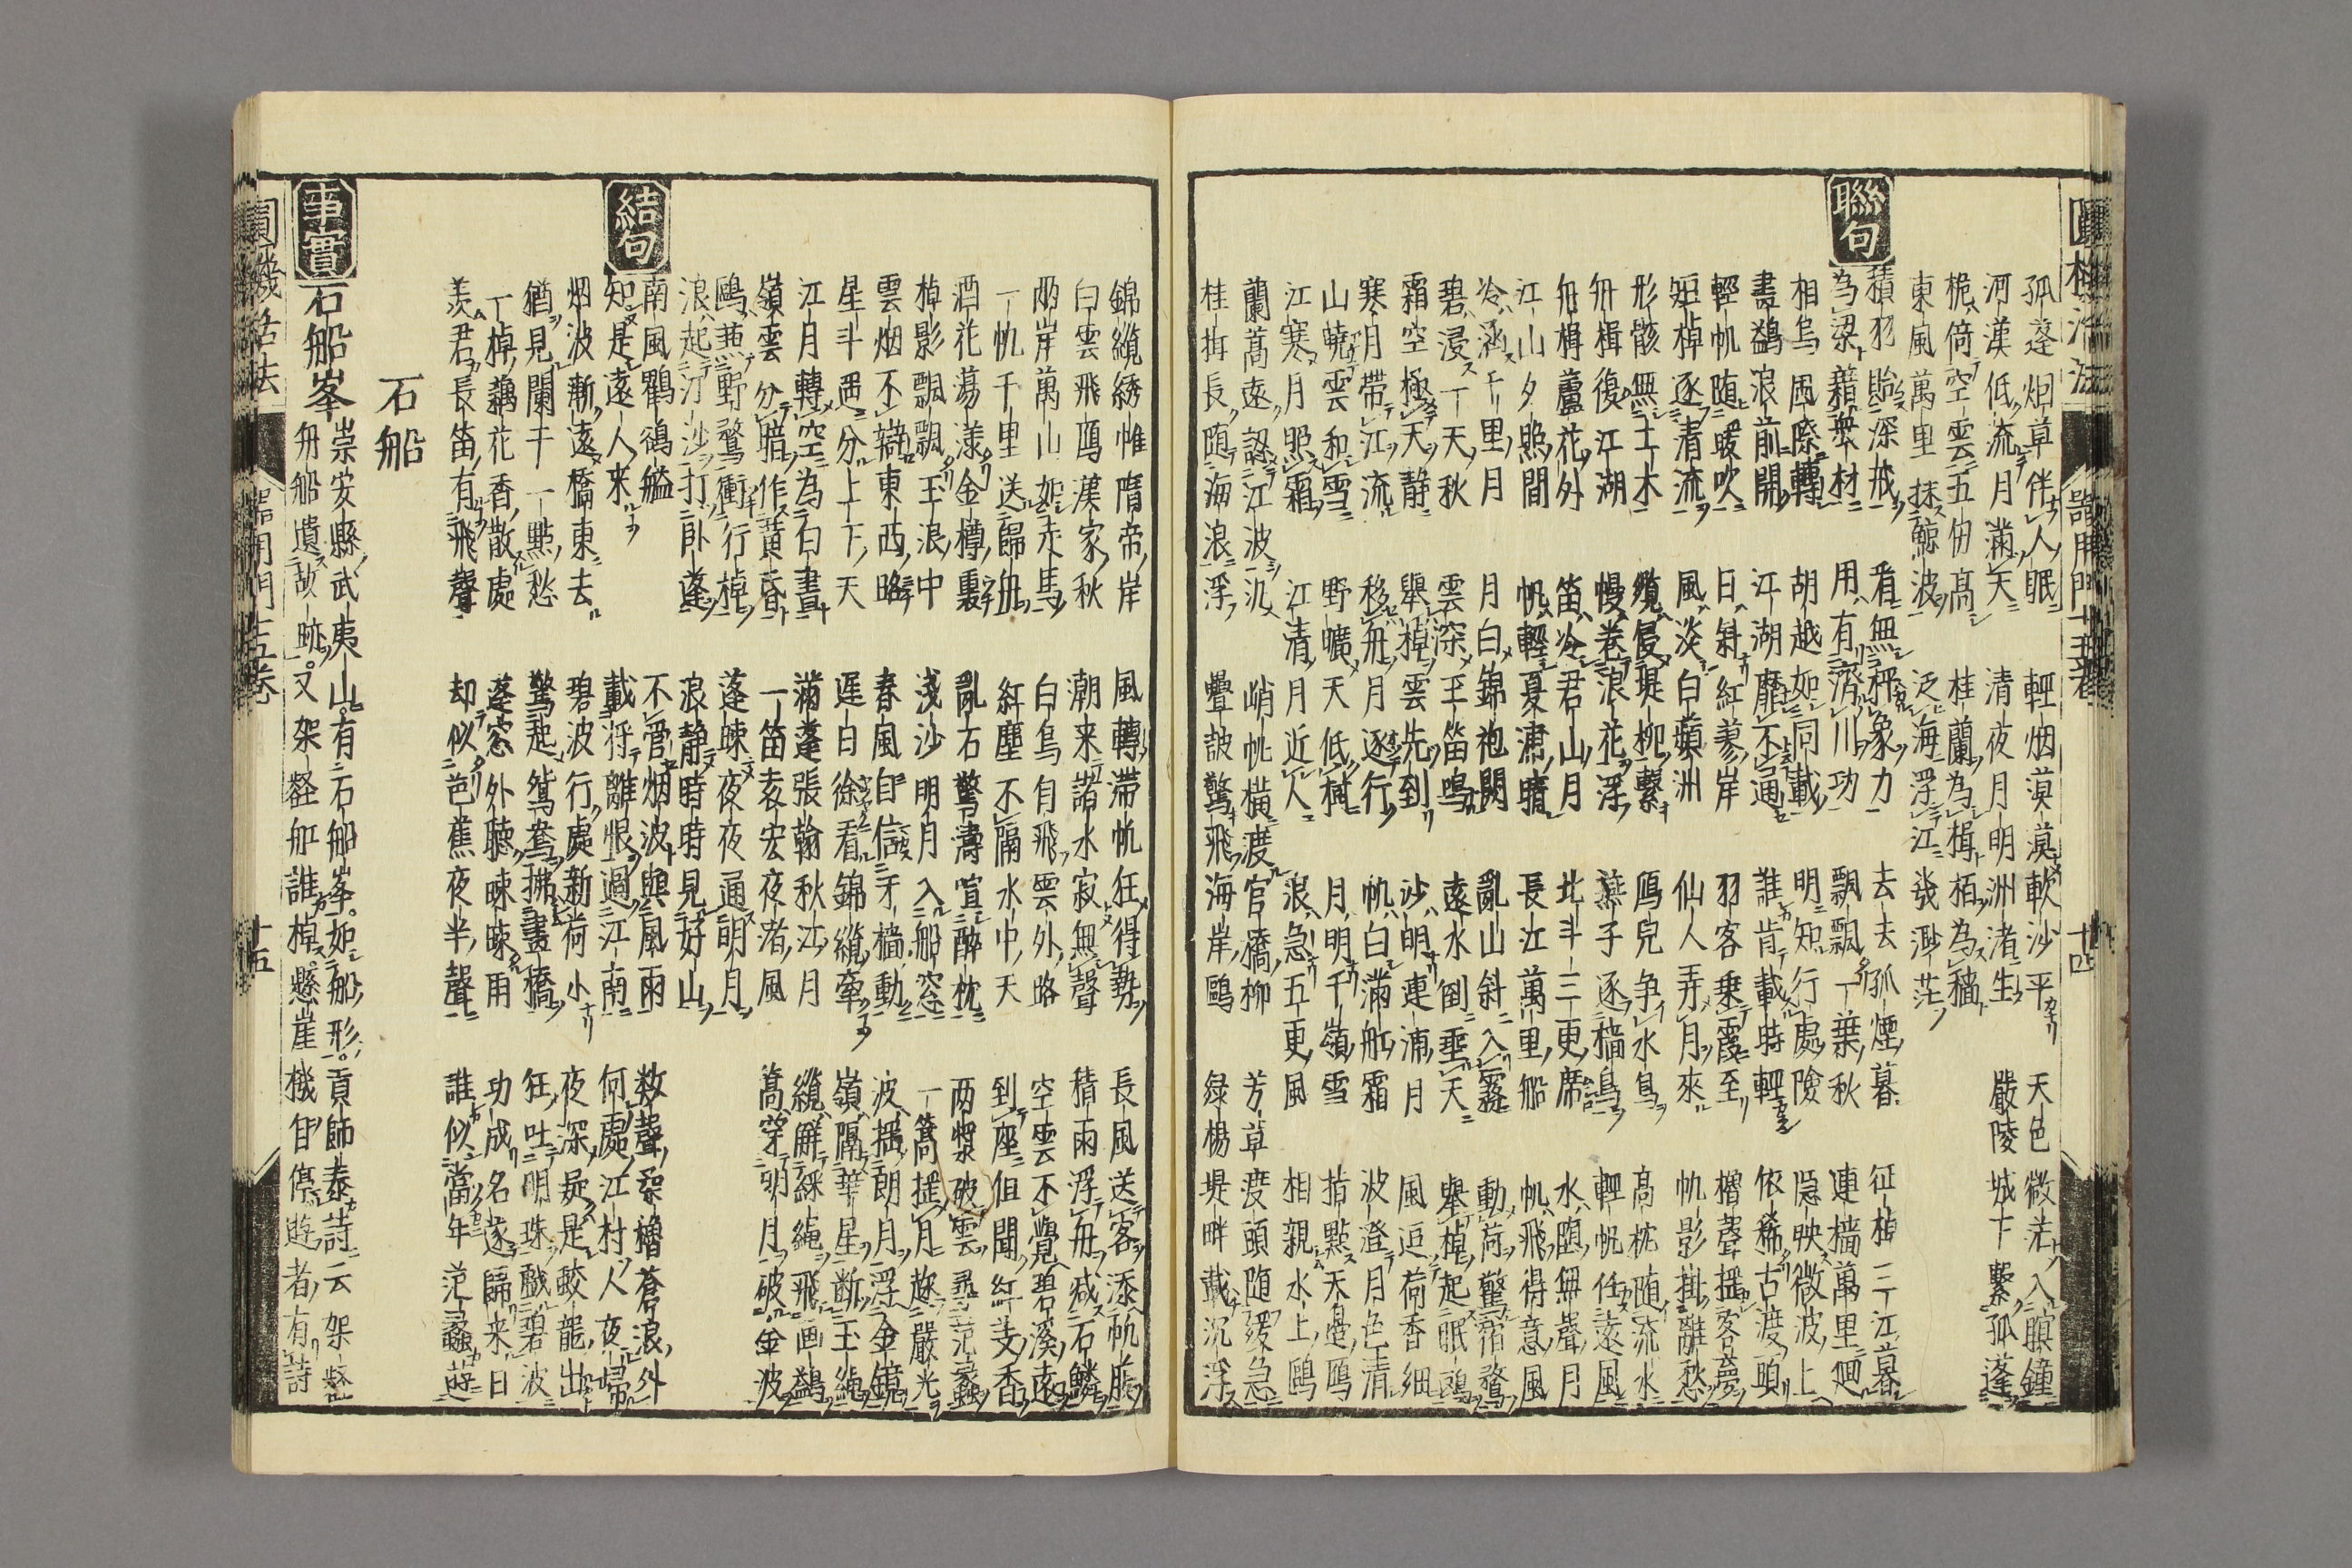 孤蓬烟草伴人眠　輕烟漠漠軟沙平　天色微茫入暝鐘
河漢低流月滿天　清夜月明洲渚生　嚴陵城下繫孤蓬
桅倚空雲五仞高　桂蘭為楫栢為檣
東風萬里抹鯨波　泛海浮江㢤渺茫
聯句
積羽貽深戒　看無秤象力　去去孤煙暮　征棹三江暮
為梁藉衆材　用有濟川功　飄飄一葉秋　連檣萬里廻
相烏風際轉　胡越如同載　明知行處險　隠映微波上
畫鷁浪前開　江湖靡不通　誰肯載時輕　依稀古渡頭
輕帆随暖吹　日斜紅蓼岸　羽客乗霞至　櫓聲揺客夢
短棹逐清流　風淡白蘋洲　仙人弄月來　帆影掛離愁
形骸無土木　纜侵堤柳繫　鴈兒争水鳥　高枕随流水
舟楫復江湖　幔卷浪花浮　燕子逐檣烏　輕帆任遠風
舟楫蘆花外　笛冷君山月　北斗三更席　水随無聲月
江山夕照間　帆輕夏潇晴　長江萬里船　帆飛得意風
冷涵千里月　月白錦袍閑　亂山斜入霧　動荷驚宿鷺
碧浸一天秋　雲深玉笛鳴　遠水倒垂天　舉棹起眠鷗
霜空極天静　舉棹雲先到　沙明連浦月　風逗荷香細
寒月帶江流　移舟月逐行　帆白滿舡霜　波澄月色清
山曉雲和雪　野曠天低樹　月明千嶺雪　指點天邊鴈
江寒月照霜　江清月近人　浪急五更風　相親水上鷗
蘭蒿遠認江波汎　峭帆横渡官橋柳　芳草渡頭随緩急
桂楫長随海浪浮　疊鼓驚飛海岸鷗　緑楊堤畔載沉浮
錦纜綉帷隋帝岸　風轉滞帆狂得勢　長風送客添帆腹
白雲飛鴈漢家秋　潮来諸水寂無聲　積雨浮舟減石鱗
兩岸萬山如走馬　白鳥自飛雲外路　空雲不覺碧溪遠
一帆千里送歸舟　紅塵不隔水中天　到座但聞紅芰香
酒花蕩漾金樽裏　亂石驚濤喧醉枕　两槳破雲尋范蠡
棹影飄飄玉浪中　淺沙明月入船窓　一篙撐月趂嚴光
雲烟不辯東西路　春風自信牙檣動　波揺朗月浮金鏡
星斗遇分上下天　遲日徐看錦纜牽　嶺隔華星斷玉繩
江月轉空為白晝　滿蓬張翰秋江月　纜解綵繩飛画鷁
嶺雲分暗作黄昏　一笛袁宏夜渚風　篙穿明月破金波
鷗燕野鷺衝行棹　蓬暕夜夜通明月
浪起汀沙打臥蓬　浪静時時見好山
結句
南風鸛鵒艗　不管烟波與風雨　数聲柔櫓蒼浪外
知是遠人来　載将離恨過江南　何處江村人夜歸
烟波漸遠橋東去　碧波行處新荷小　夜深疑是蛟龍出
猶見闌干一點愁　驚起鴛鴦拂畫橋　狂吐明珠戲碧波
一棹藕花香散處　蓬窓外聽暕雨　功成名遂歸来日
羨君長笛有飛聲　却似芭蕉夜半聲　誰似當年范蠡遊
石船
事實
石船峯　崇安縣武夷山有石船峯如船形貢師泰詩云架壑
舟船遺故跡又架壑舡誰棹懸崖機自停遊者有詩
圓機活法　器用門十五卷　十四
圓機活法　器用門十五卷　十五